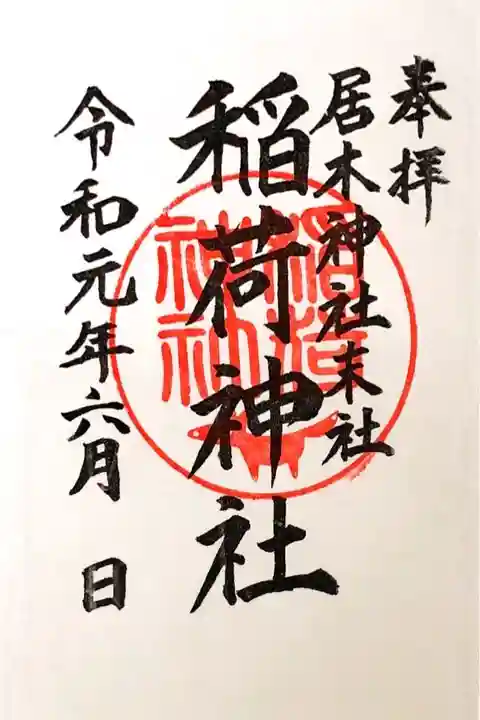 奉拝
居木神社末社
稲荷神社
令和元年六月 日
稲荷
神社